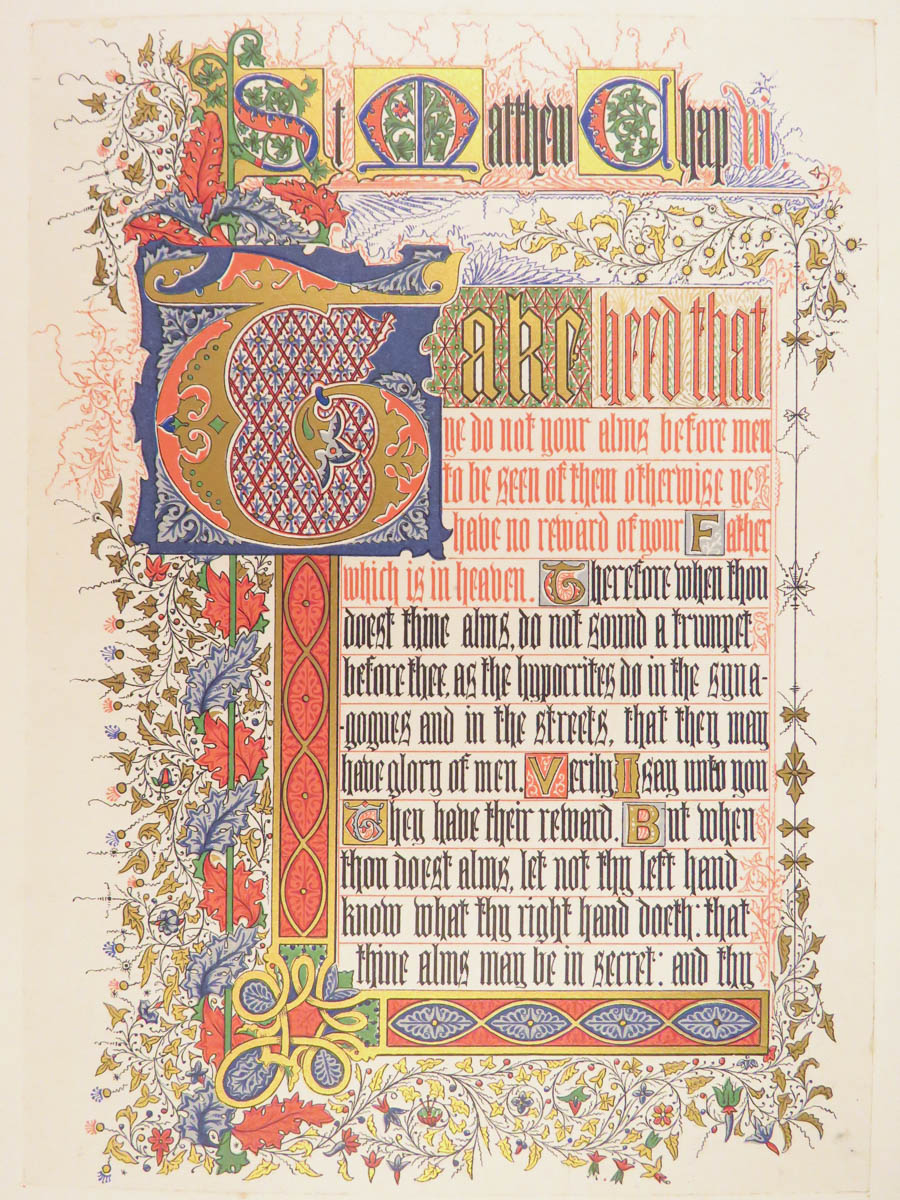 St Matthew Chap VI.
Take heed that
ye do not your alms before men
to be seen of them otherwise ye
have no reward of your Father
which is in heaven. Therefore when thou
doest thine alms, do not sound a trumpet
before thee, as the hypocrites do in the syna-
-gogues and in the streets, that they may
have glory of men. Verily I say unto you
They have their reward. But when
thou doest alms, let not thy left hand
know what thy right hand doeth: that
thine alms may be in secret: and thy